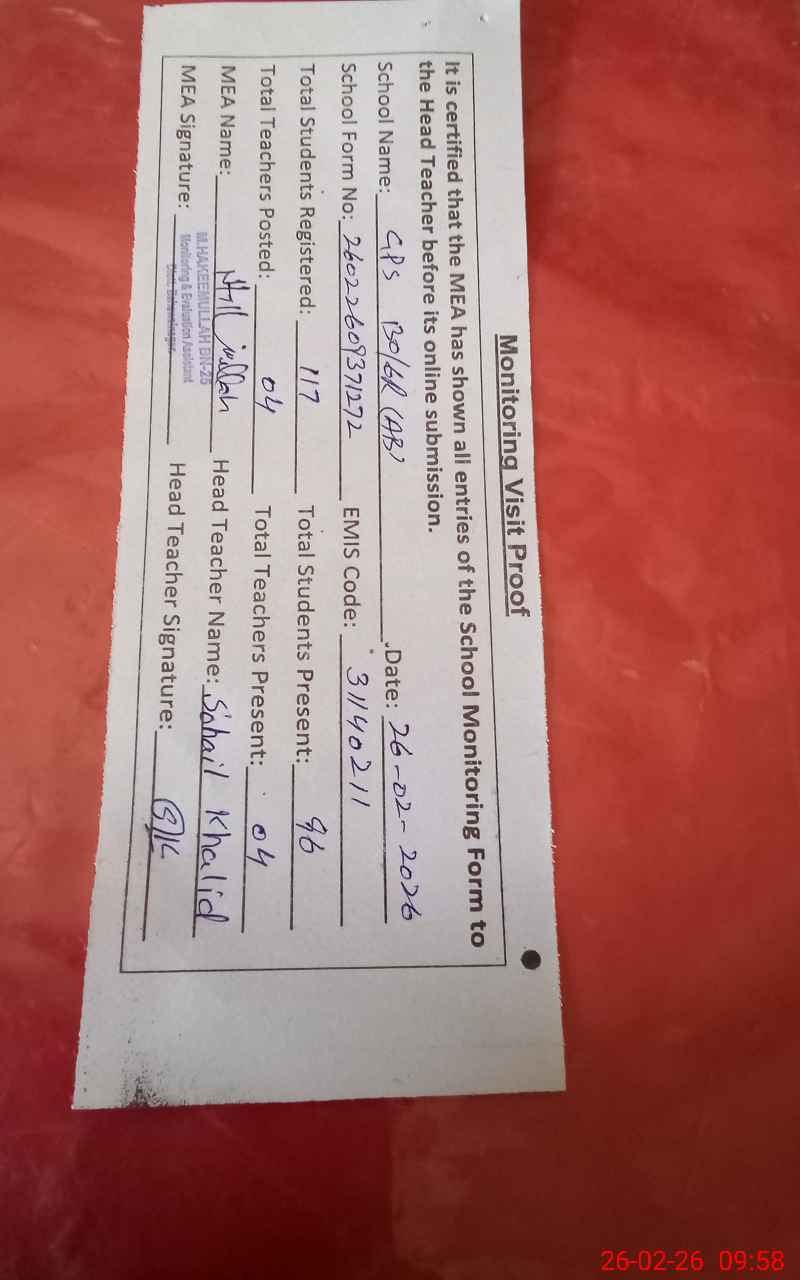 Monitoring Visit Proof
It is certified that the MEA has shown all entries of the School Monitoring Form to
the Head Teacher before its online submission.
School Name: GPS 130/6R (AB) Date: 26-02-2026
School Form No: 26022609371272 EMIS Code: 31140211
Total Students Registered: 117 Total Students Present: 96
Total Teachers Posted: 04 Total Teachers Present: 04
MEA Name: Head Teacher Name: Sohail Khalid
MEA Signature: Head Teacher Signature: SK
M.HAKEEMULLAH BN-25
Monitoring & Evaluation Assistant
Distt. Bahawalnagar
26-02-26 09:58